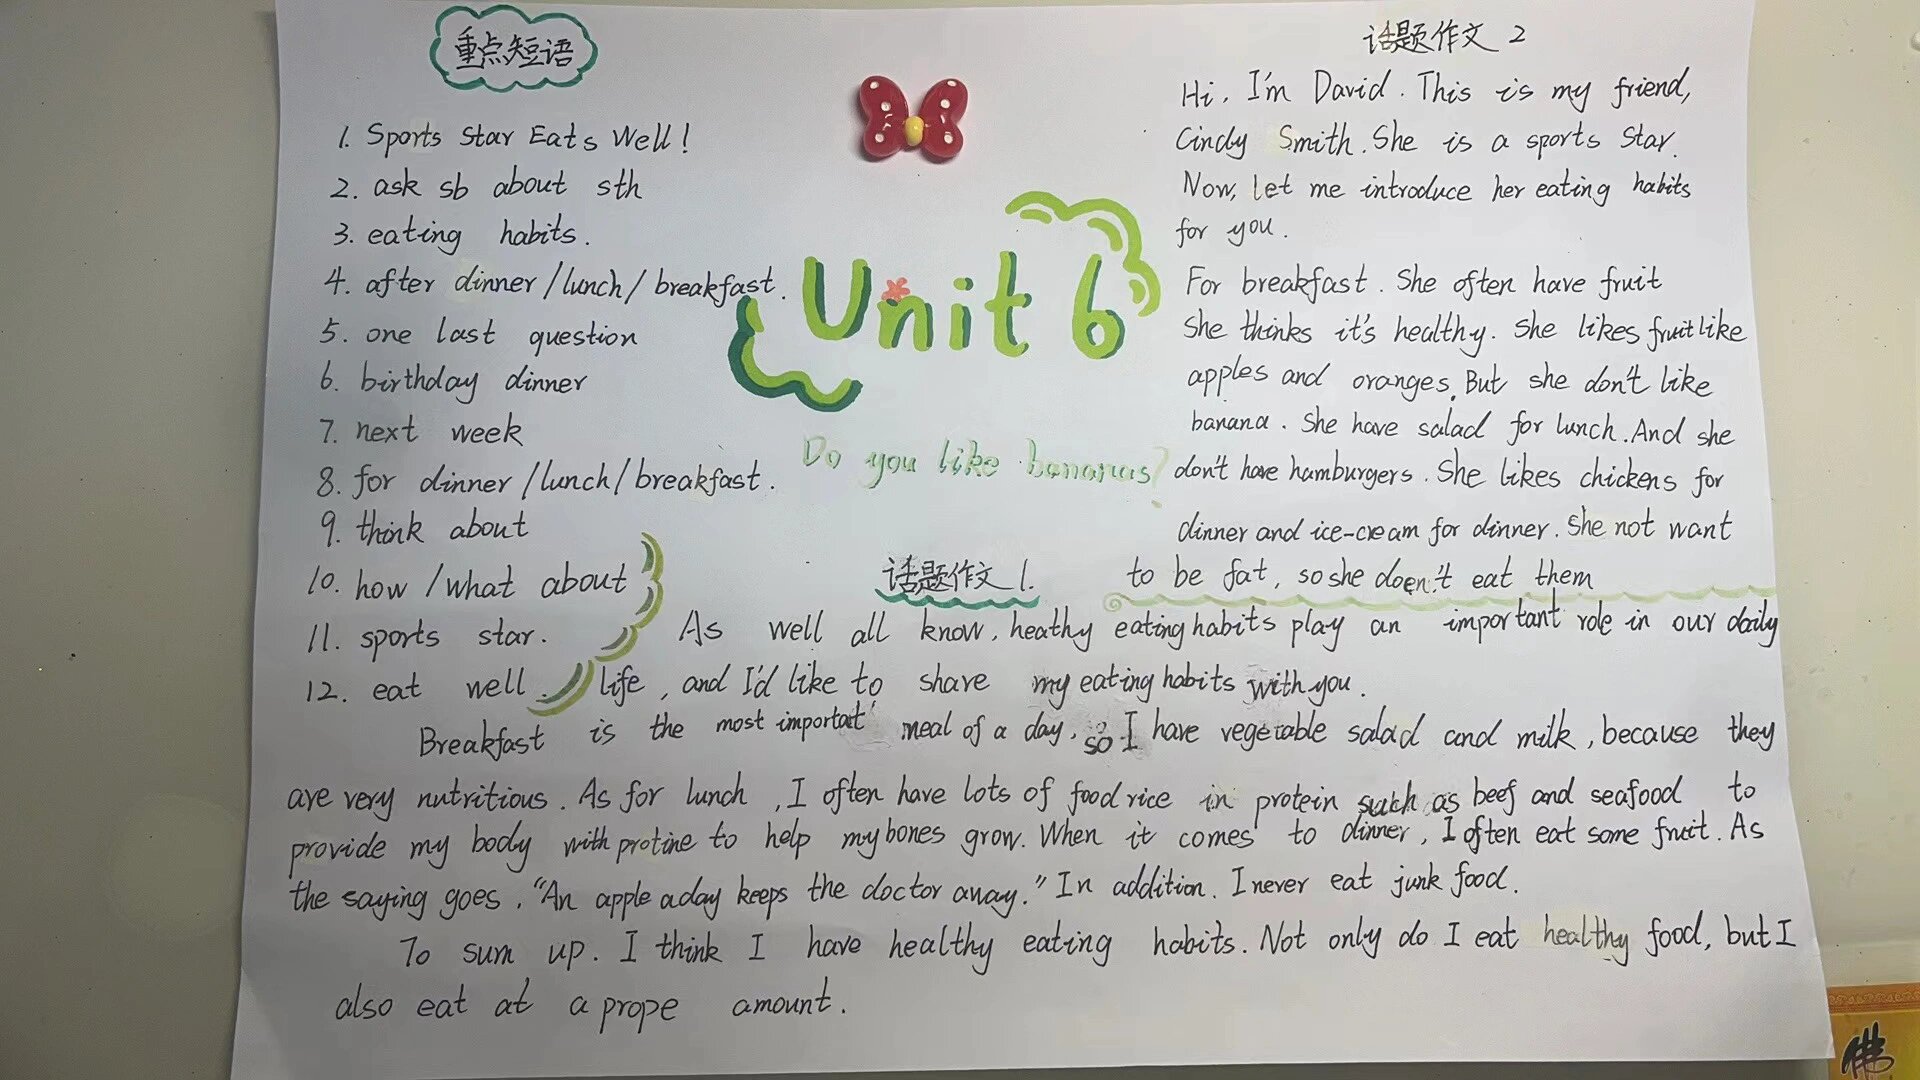 重点短语
1. Sports Star Eats Well!
2. ask sb about sth
3. eating habits.
4. after dinner/lunch/breakfast.
5. one last question
6. birthday dinner
7. next week
8. for dinner/lunch/breakfast.
9. think about
10. how/what about
11. sports star.
12. eat well.
Unit 6
Do you like bananas?
话题作文 2
Hi, I'm David. This is my friend,
Cindy Smith. She is a sports Star.
Now, let me introduce her eating habits
for you.
For breakfast. She often have fruit
She thinks it's healthy. She likes fruit like
apples and oranges. But she don't like
banana. She have salad for lunch. And she
don't have hamburgers. She likes chickens for
dinner and ice-cream for dinner. She not want
to be fat, so she doen't eat them
话题作文 1.
As well all know, heathy eating habits play an important role in our daily
life, and I'd like to share my eating habits with you.
Breakfast is the most importat meal of a day. so I have vegetable salad and milk, because they
are very nutritious. As for lunch, I often have lots of food rice in protein such as beef and seafood to
provide my body with protine to help my bones grow. When it comes to dinner, I often eat some fruit. As
the saying goes, "An apple a day keeps the doctor away." In addition. I never eat junk food.
To sum up. I think I have healthy eating habits. Not only do I eat healthy food, but I
also eat at a prope amount.
佛